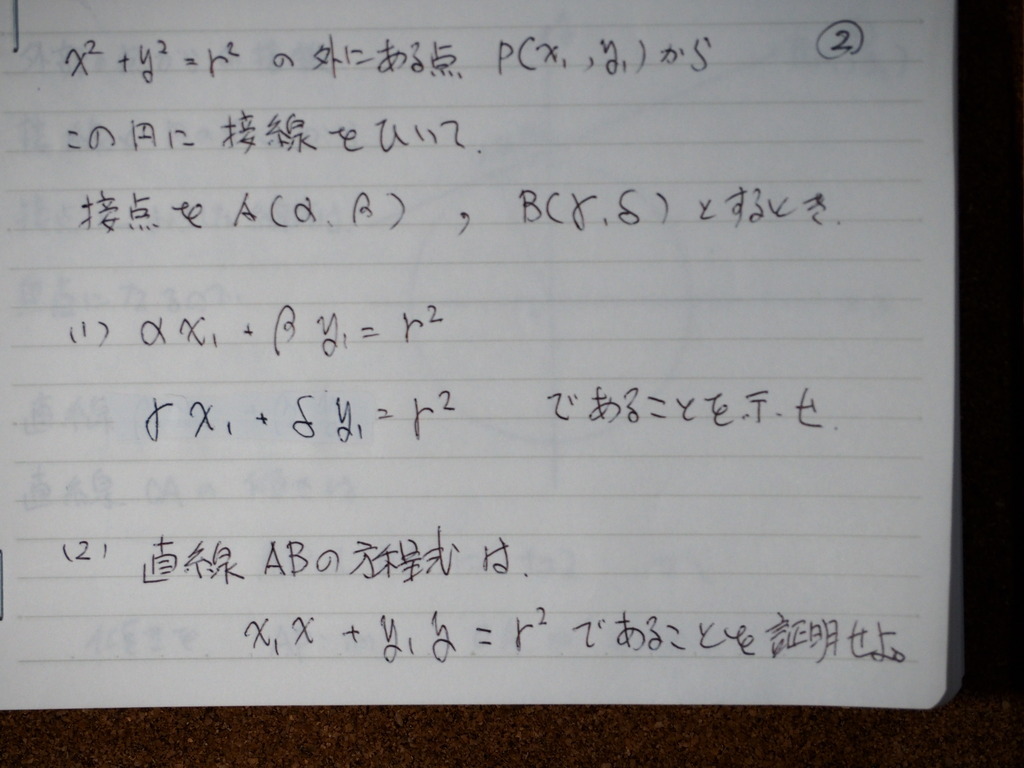 x² + y² = r² の外にある点 P(x₁, y₁)から ②
この円に接線をひいて.
接点を A(α, β) , B(γ, δ)とするとき.
(1) αx₁ + βy₁ = r²
γx₁ + δy₁ = r² であることを示せ.
(2) 直線ABの方程式は.
x₁x + y₁y = r² であることを証明せよ。